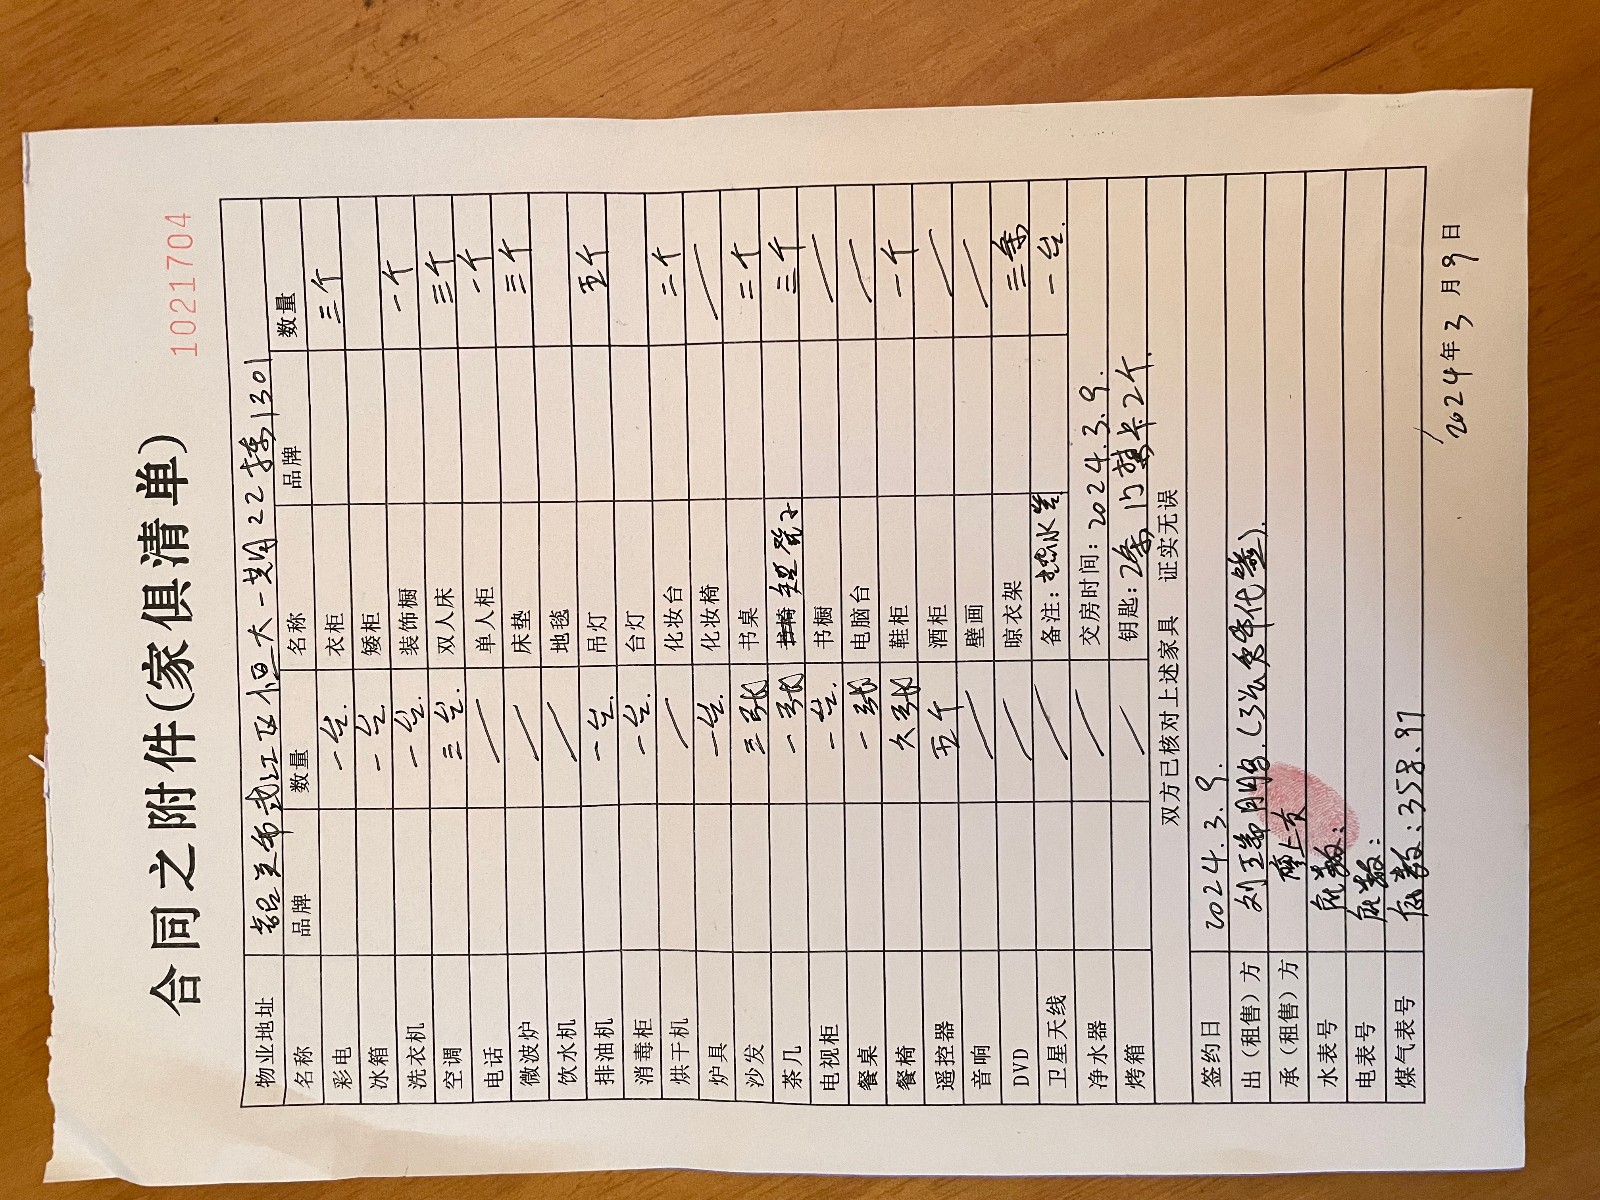 合同之附件(家俱清单)
1021704
物业地址 韶关市武江区恒大一期22栋1301
名称 品牌 数量 名称 品牌 数量
彩电 一台. 衣柜 三个
冰箱 一台 矮柜
洗衣机 一台. 装饰橱 一个
空调 三台. 双人床 三个
电话 / 单人柜 一个
微波炉 / 床垫 三个
饮水机 / 地毯
排油机 一台. 吊灯 五个
消毒柜 一台. 台灯
烘干机 / 化妆台 二个
炉具 一台. 化妆椅 /
沙发 三张 书桌 二个
茶几 一张 凳子 三个
电视柜 一台. 书橱 /
餐桌 一张 电脑台 /
餐椅 六张 鞋柜 一个
遥控器 五个 酒柜 /
音响 / 壁画 /
DVD / 晾衣架 三条
卫星天线 / 备注: 热水器 一台.
净水器 / 交房时间: 2024.3.9.
烤箱 / 钥匙: 2条 门禁卡2个.
双方已核对上述家具 证实无误
签约日 2024.3.9.
出(租售)方
承(租售)方
水表号 底数:
电表号 底数:
煤气表号 底数: 358.97
2024年3月9日